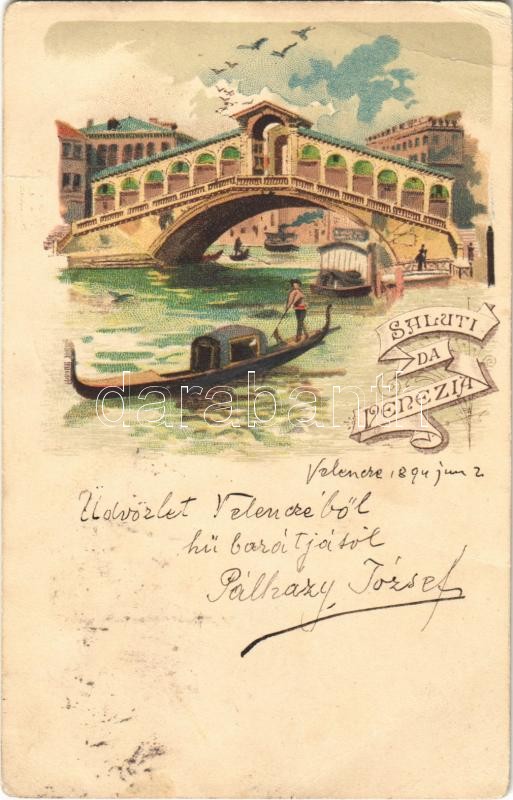 SALUTI
DA
VENEZIA
darabanth
Velencze 1894 jun 2.
Üdvözlet Velenczéből
hű barátjásól
Pálházy József